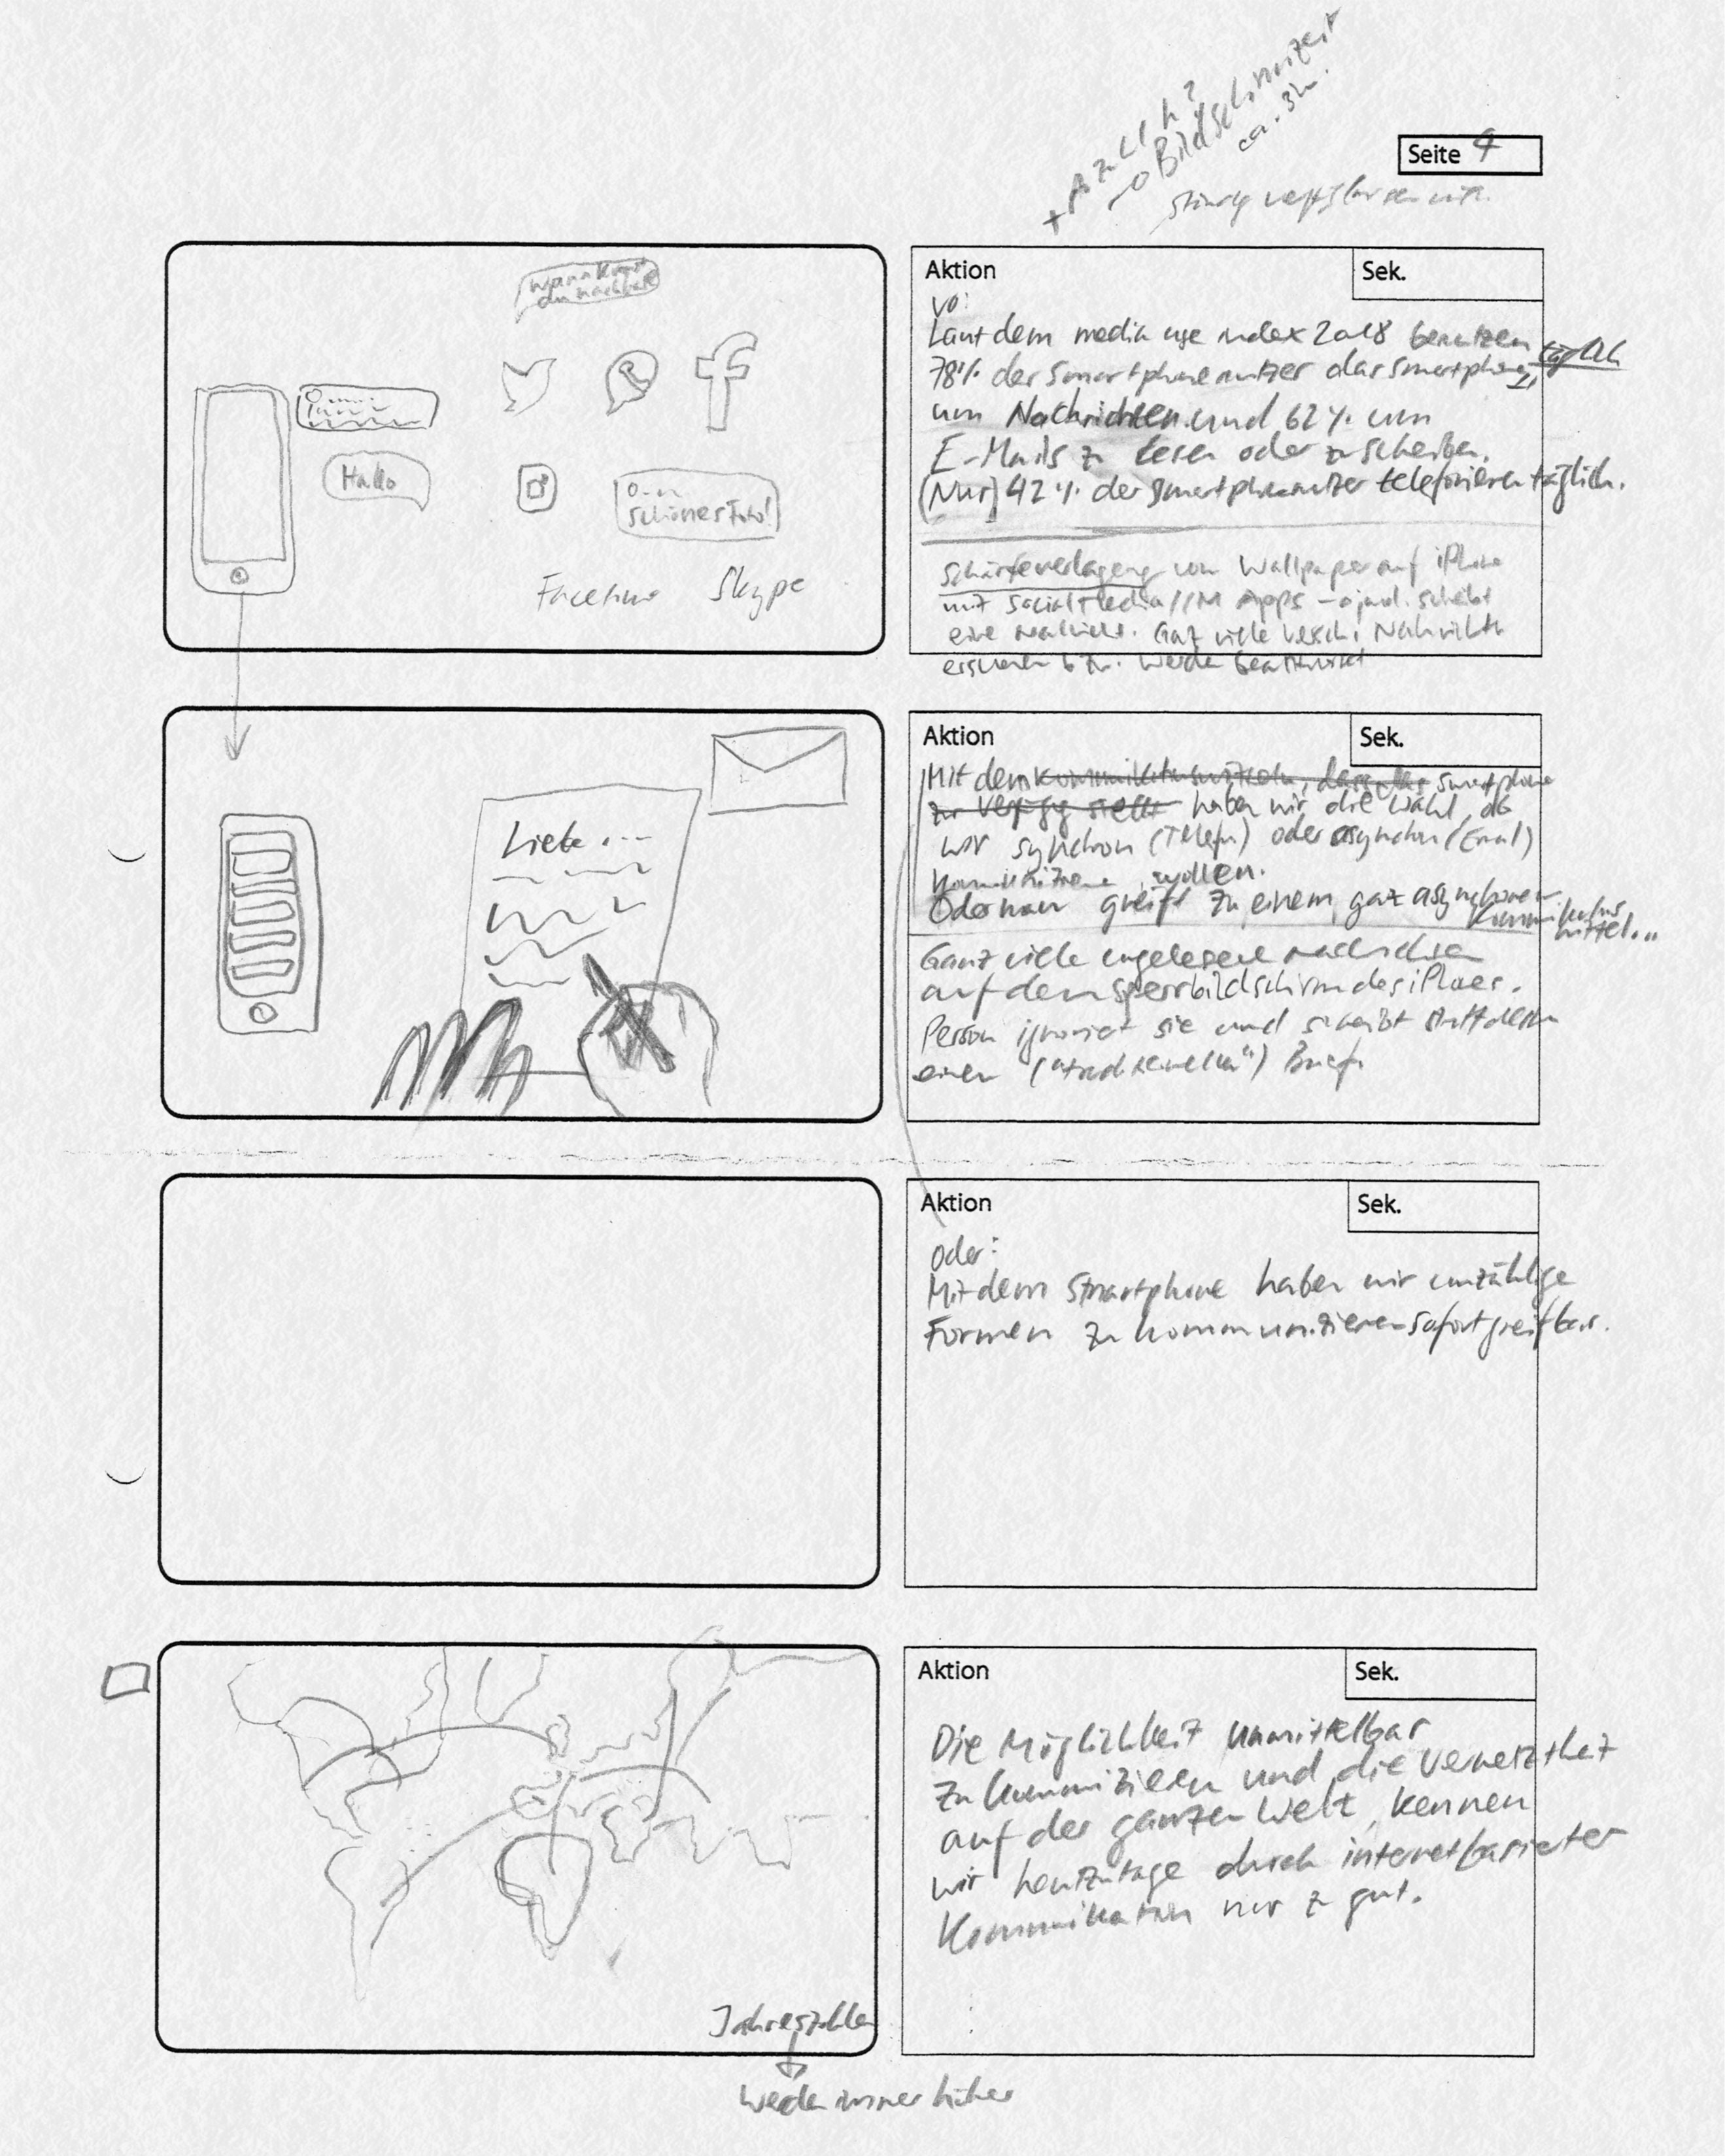 + Anzahl h?
→ Bildschirmzeit
ca. 3h.
Seite 4
Wann kommst
du nachhause
Hallo
schönes Foto!
Facetime Skype
Aktion Sek.
VO:
Laut dem media use index 2018 benutzen
78% der Smartphonenutzer das Smartphone täglich,
um Nachrichten und 62% um
E-Mails zu lesen oder zu schreiben.
(Nur) 42% der Smartphonenutzer telefonieren täglich.
Schärfeverlagerung von Wallpaper auf iPhone
mit Social Media/IM Apps → jmd. schreibt
eine Nachricht. Ganz viele versch. Nachrichten
erscheinen bzw. werden beantwortet
Liebe ...
Aktion Sek.
Mit dem Kommunikationsmitteln, dass das Smartphone
zur Verfügung stellt haben wir die Wahl, ob
wir synchron (Telefon) oder asynchron (Email)
kommunizieren wollen.
Oder man greift zu einem ganz asynchronen
Kommunikations
mittel...
Ganz viele ungelesene Nachrichten
auf dem Sperrbildschirm des iPhones.
Person ignoriert sie und schreibt stattdessen
einen ("traditionellen") Brief.
Aktion Sek.
oder:
Mit dem Smartphone haben wir unzählige
Formen zu kommunizieren sofort greifbar.
Aktion Sek.
Die Möglichkeit unmittelbar
zu kommunizieren und die Vernetztheit
auf der ganzen Welt, kennen
wir heutzutage durch internetbasierter
Kommunikation nur zu gut.
Jahreszahlen
werden immer höher